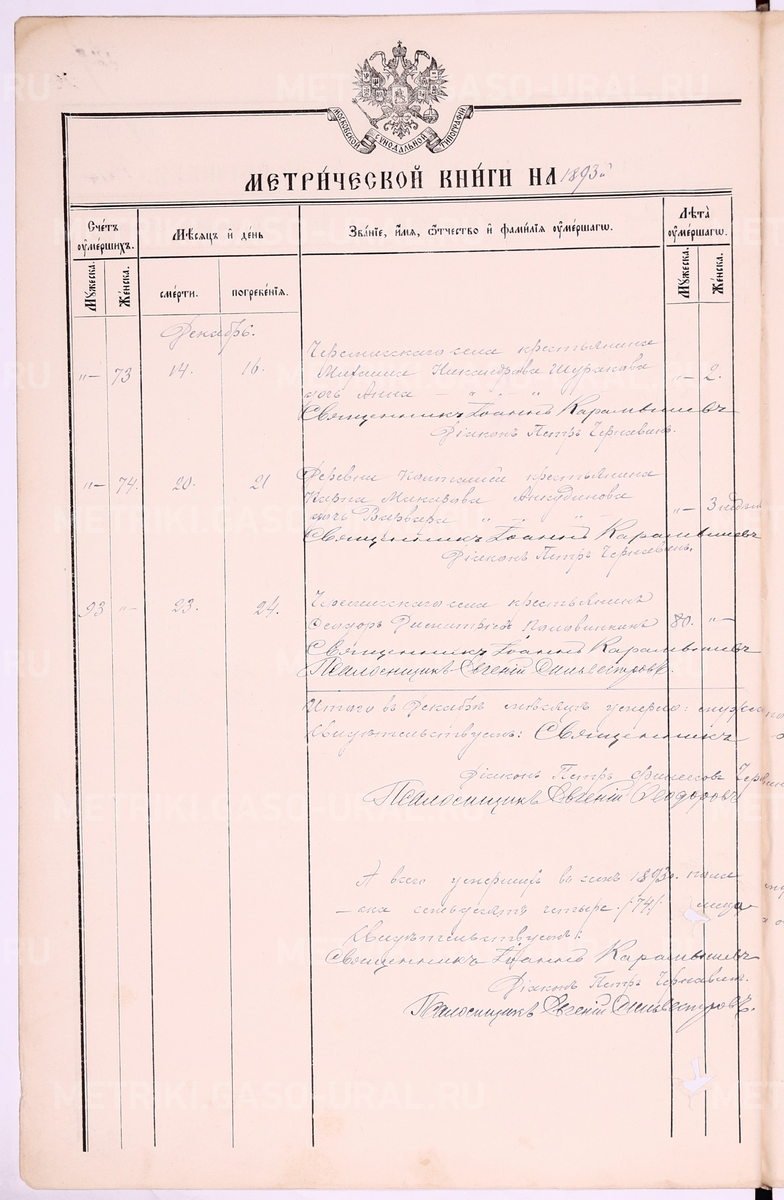 МОСКОВСКОЙ СѴНОДАЛЬНОЙ ТИПОГРАФІИ
МЕТРИ́ЧЕСКОЙ КНИ́ГИ НА 1893й
Сче́тъ оуме́ршихъ.
Мѣ́сяцъ и де́нь
Зва́нїе, и́мя, ѻ́тчество и фами́лїя оуме́ршагѡ.
Лѣ́та оуме́ршагѡ.
Мꙋ́жеска.
Же́нска.
сме́рти.
погребе́нїя.
Мꙋ́жеска.
Же́нска.
Декабрь.
Черемисскаго села крестьянина
"– 73 14. 16. Михаила Никандрова Шуракова "– 2.
дочь Анна – " – "
Священникъ Іоаннъ Карамышевъ
Діаконъ Петръ Чернавинъ.
Деревни крестьянина
"– 74. 20. 21 Карпа Макарова Анкудинова "– 3 недѣли
дочь Варвара " " " –
Священникъ Іоаннъ Карамышевъ
Діаконъ Петръ Чернавинъ.
Черемисскаго села крестьянинъ
93 "– 23. 24. Ѳеодоръ Димитріевъ Половинкинъ 80. "–
Священникъ Іоаннъ Карамышевъ
Псаломщикъ Евгеній Сильвестровъ.
Итого въ Декабрѣ мѣсяцѣ умерло:
Свидѣтельствуютъ: Священникъ
Діаконъ Петръ
Псаломщикъ Евгеній
А всего умершихъ въ семъ 1893 г. пола
– ска семьдесятъ четыре /74/.
Свидѣтельствуютъ:
Священникъ Іоаннъ Карамышевъ
Діаконъ Петръ Чернавинъ.
Псаломщикъ Евгеній Сильвестровъ.
METRIKI.GASO-URAL.RU